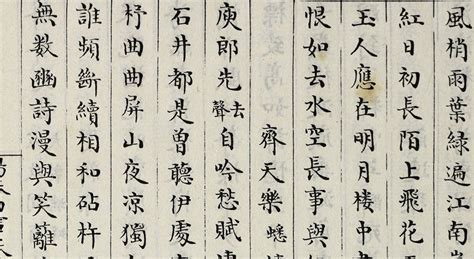 風梢雨葉綠遍江南
紅日初長陌上飛花
玉人應在明月楼中
恨如去水空長事與
齊天樂蟋
庾郎先去聲自吟愁賦
石井都是曾聽伊處
杼曲曲屏山夜涼獨
誰頻斷續相和砧杵
無數豳詩漫與笑籬